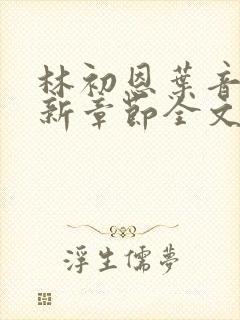 林初恩葉音
新章節全文
浮生儒夢